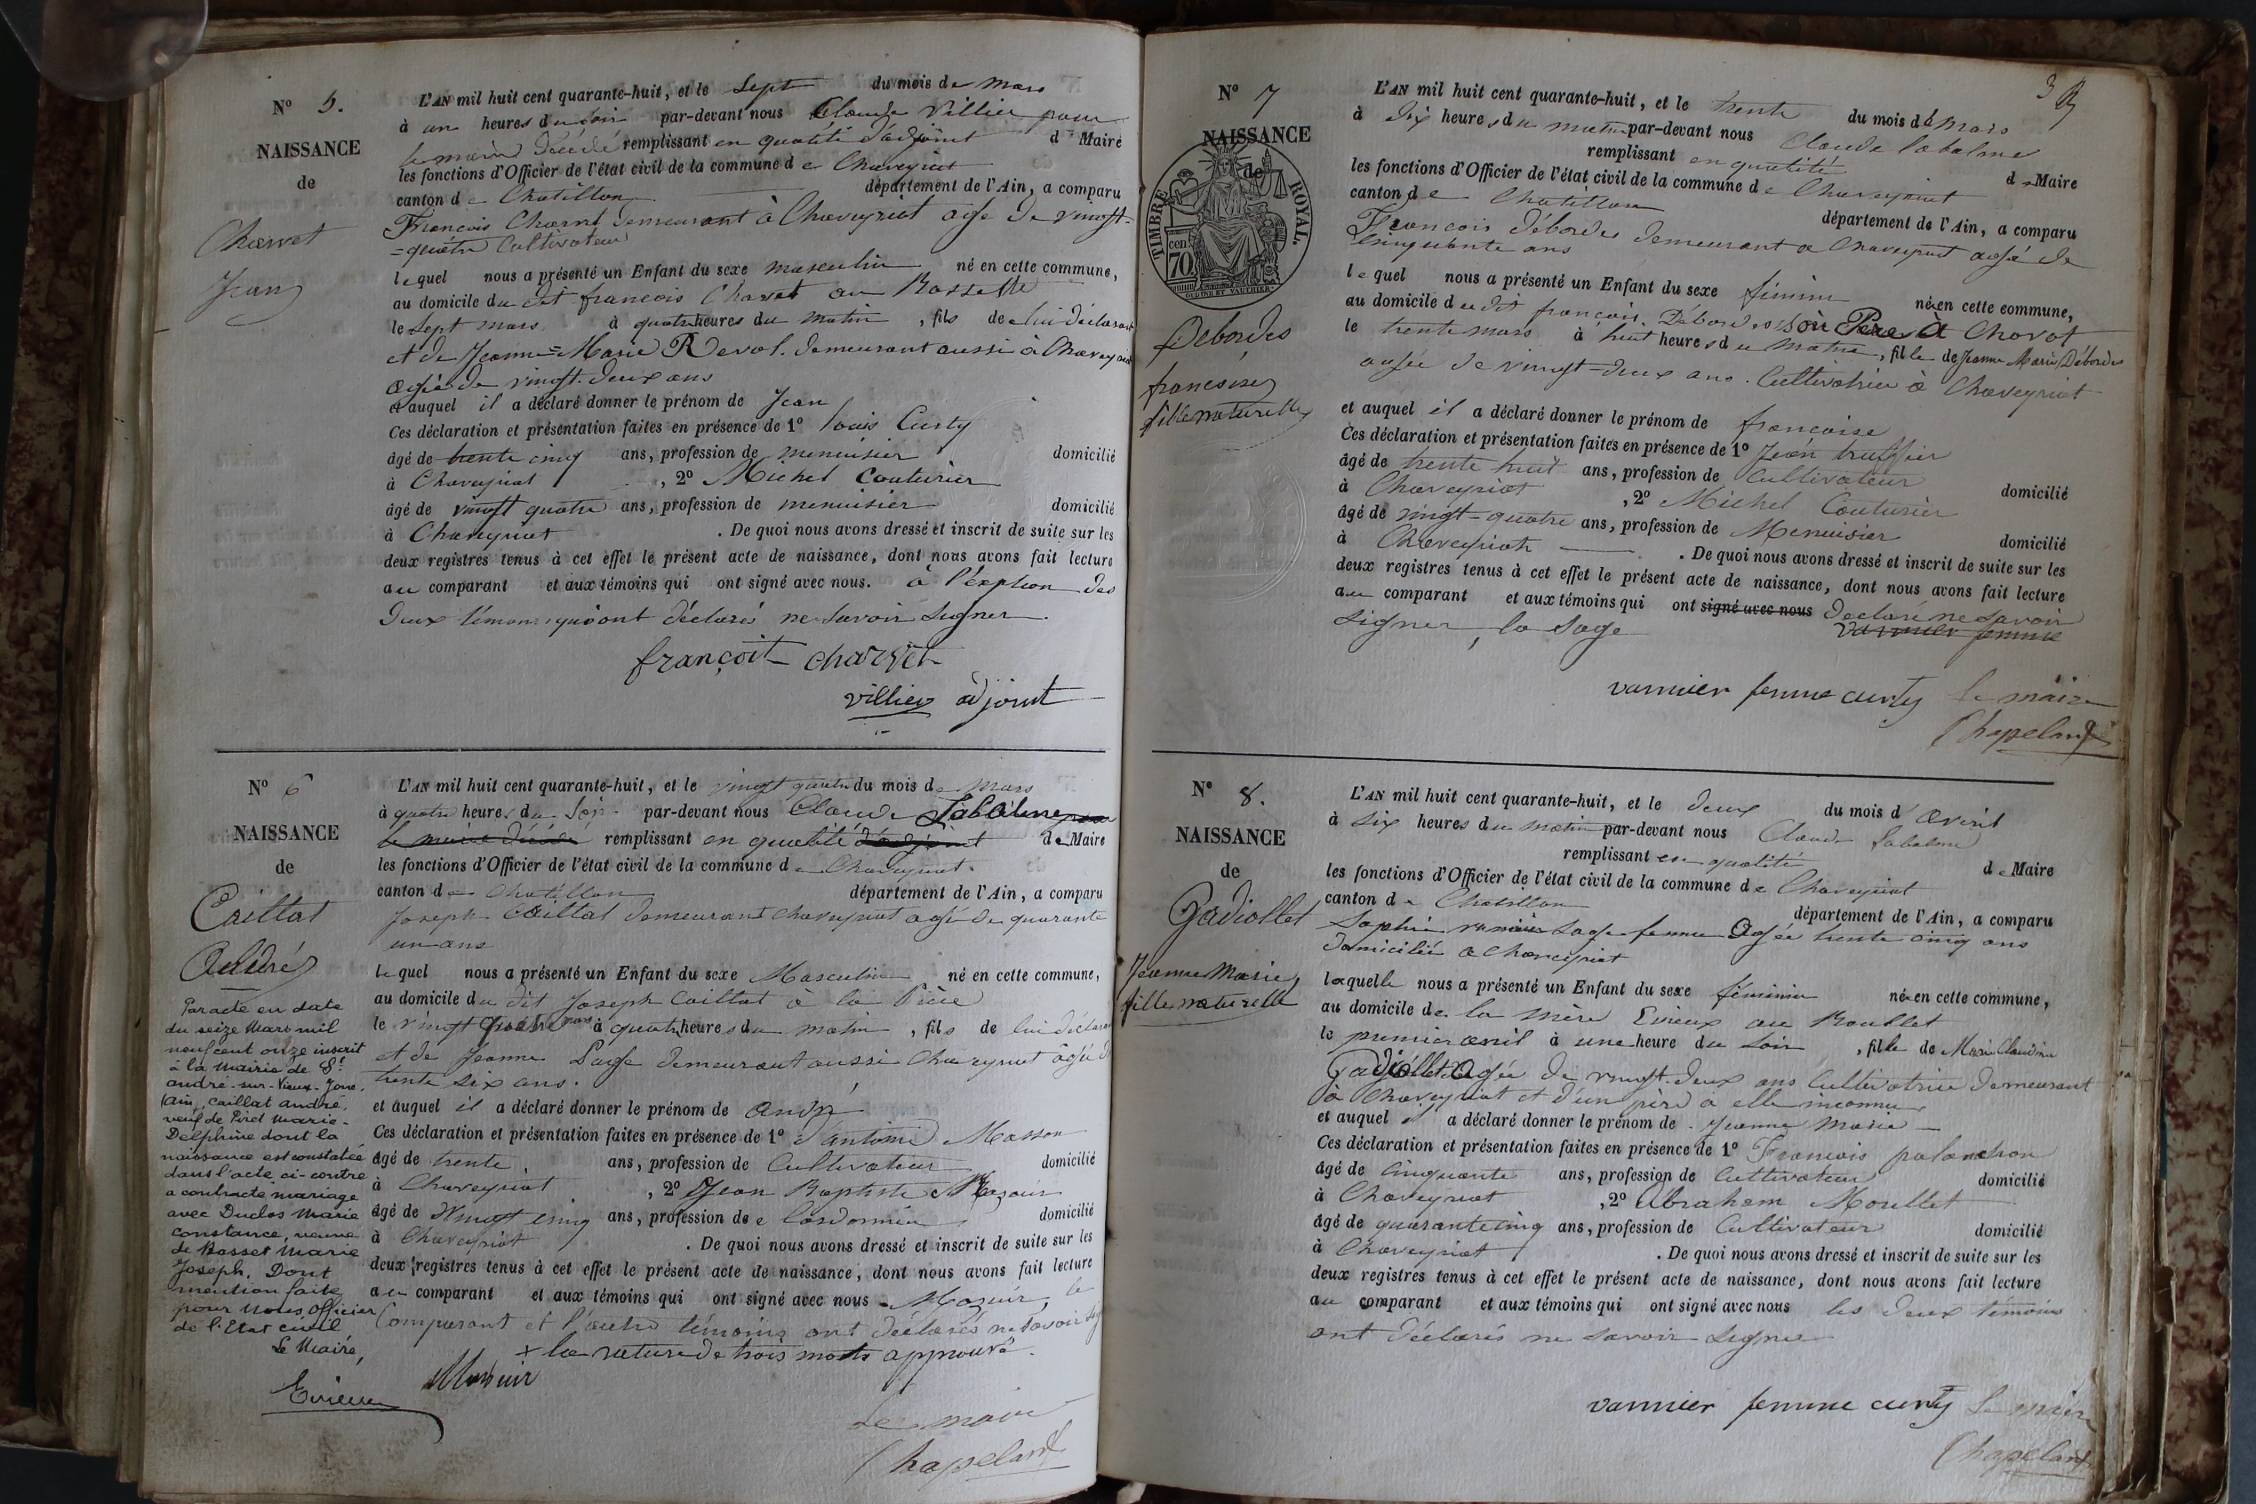 N° 5.
NAISSANCE
de
Charvet
Jean
L'AN mil huit cent quarante-huit, et le sept du mois de mars
à un heures du soir par-devant nous Claude Villier pour
le maire décédé remplissant en qualité d'adjoint d Maire
les fonctions d'Officier de l'état civil de la commune de Chaveyriat
canton de Chatillon département de l'Ain, a comparu
François Charvet demeurant à Chaveyriat age de vingt-
=quatre Cultivateur
lequel nous a présenté un Enfant du sexe masculin né en cette commune,
au domicile du dit françois Charvet au
le sept mars à quatre heures du matin, fils de lui déclarant
et de Jeanne=Marie Revol. demeurant aussi à Chaveyriat
agée de vingt-deux ans
et auquel il a déclaré donner le prénom de Jean
Ces déclaration et présentation faites en présence de 1° louis Curty
âgé de trente cinq ans, profession de menuisier domicilié
à Chaveyriat, 2° Michel Couturier
âgé de vingt quatre ans, profession de menuisier domicilié
à Chaveyriat. De quoi nous avons dressé et inscrit de suite sur les
deux registres tenus à cet effet le présent acte de naissance, dont nous avons fait lecture
au comparant et aux témoins qui ont signé avec nous. à l'exption des
deux témoins qui ont déclarés ne savoir signer.
françoit charvet
villier adjoint
N° 6
NAISSANCE
de
Caillat
André
Par acte en date
du seize Mars mil
neuf cent onze inscrit
à la Mairie de St
andré-sur-Vieux-Jonc,
(ain), caillat andré,
veuf de Pirel Marie-
Delphine dont la
naissance est constatée
dans l'acte ci-contre
a contracté mariage
avec Duclos Marie
constance, veuve
de Basset Marie
Joseph. Dont
mention faite
par Nous officier
de l'Etat civil
Le Maire,
Evieux
L'AN mil huit cent quarante-huit, et le vingt quatre du mois de mars
à quatre heures du soir par-devant nous Claude Labalme pour
le maire décédé remplissant en qualité d'adjoint de Maire
les fonctions d'Officier de l'état civil de la commune de Chaveyriat
canton de Chatillon département de l'Ain, a comparu
Joseph Caillat demeurant Chaveyriat agé de quarante
un ans
lequel nous a présenté un Enfant du sexe Masculin né en cette commune,
au domicile du dit Joseph Caillat à la
le vingt quatre mars à quatre heures du matin, fils de lui déclarant
et de Jeanne Page demeurant aussi Chaveyriat âgée de
trente six ans.
et auquel il a déclaré donner le prénom de André
Ces déclaration et présentation faites en présence de 1° d'antoine Masson
âgé de trente ans, profession de Cultivateur domicilié
à Chaveyriat, 2° Jean Baptiste Mazuir
âgé de vingt cinq ans, profession de Cordonnier domicilié
à Chaveyriat. De quoi nous avons dressé et inscrit de suite sur les
deux registres tenus à cet effet le présent acte de naissance, dont nous avons fait lecture
au comparant et aux témoins qui ont signé avec nous. Mazuir, le
Comparant et l'autre témoins ont déclarés ne savoir sig
+ la rature de trois mots approuvé.
Mazuir
Le maire
Chapeland
3
N° 7
NAISSANCE
de
TIMBRE ROYAL
70 cen
Debordes
francoise
fille naturelle
L'AN mil huit cent quarante-huit, et le trente du mois de mars
à dix heures du matin par-devant nous Claude labalme
remplissant en qualité de Maire
les fonctions d'Officier de l'état civil de la commune de Chaveyriat
canton de Chatillon département de l'Ain, a comparu
François débordes demeurant a Chaveyriat agé de
cinquante ans
lequel nous a présenté un Enfant du sexe féminin née en cette commune,
au domicile du dit françois Débordes son Pere à Chovot
le trente mars à huit heures du matin, fille de Jeanne Marie Débordes
agée de vingt-deux ans. Cultivatrice à Chaveyriat
et auquel il a déclaré donner le prénom de francoise
Ces déclaration et présentation faites en présence de 1° Jean truffier
âgé de trente huit ans, profession de Cultivateur domicilié
à Chaveyriat, 2° Michel Couturier
âgé de vingt-quatre ans, profession de Menuisier domicilié
à Chaveyriat. De quoi nous avons dressé et inscrit de suite sur les
deux registres tenus à cet effet le présent acte de naissance, dont nous avons fait lecture
au comparant et aux témoins qui ont signé avec nous déclaré ne savoir
signer, la sage vannier femme
vannier femme curty le maire
Chapeland
N° 8.
NAISSANCE
de
Gadiollet
Jeanne Marie
fille naturelle
L'AN mil huit cent quarante-huit, et le deux du mois d'avril
à six heures du matin par-devant nous Claude labalme
remplissant en qualité de Maire
les fonctions d'Officier de l'état civil de la commune de Chaveyriat
canton de Chatillon département de l'Ain, a comparu
Sophie vannier sage femme agée trente cinq ans
domiciliée a Chaveyriat
laquelle nous a présenté un Enfant du sexe féminin née en cette commune,
au domicile de la mère Evieux au
le premier avril à une heure du soir, fille de Marie Claudine
Gadiollet agée de vingt-deux ans Cultivatrice demeurant
à Chaveyriat et d'un père a elle inconnu
et auquel il a déclaré donner le prénom de Jeanne Marie
Ces déclaration et présentation faites en présence de 1° François palanchon
âgé de cinquante ans, profession de Cultivateur domicilié
à Chaveyriat, 2° Abraham Moullet
âgé de quarante cinq ans, profession de Cultivateur domicilié
à Chaveyriat. De quoi nous avons dressé et inscrit de suite sur les
deux registres tenus à cet effet le présent acte de naissance, dont nous avons fait lecture
au comparant et aux témoins qui ont signé avec nous les deux témoins
ont déclarés ne savoir signer
vannier femme curty Le maire
Chapeland